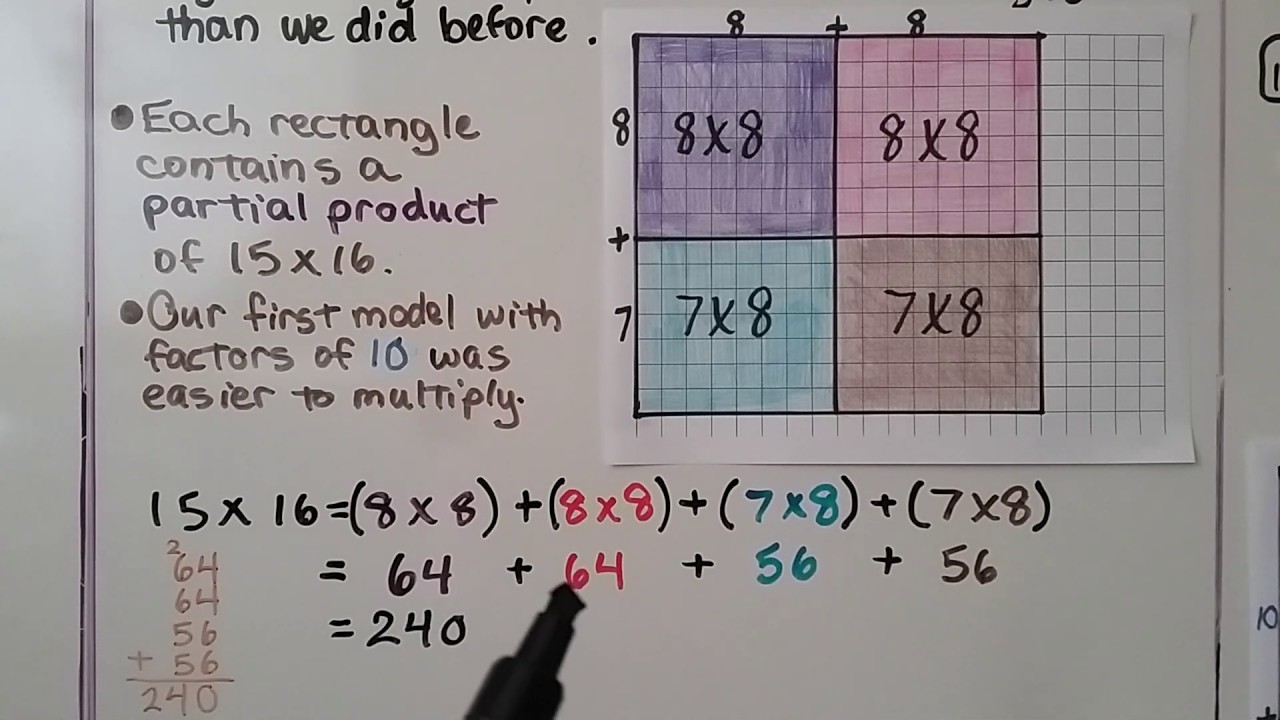 than we did before.
8 + 8
• Each rectangle
contains a
partial product
of 15 x 16.
• Our first model with
factors of 10 was
easier to multiply.
8
+
7
8x8
8x8
7x8
7x8
15 x 16=(8 x 8) +(8x8)+(7x8)+(7x8)
= 64 + 64 + 56 + 56
= 240
2
64
64
56
+ 56
240
10